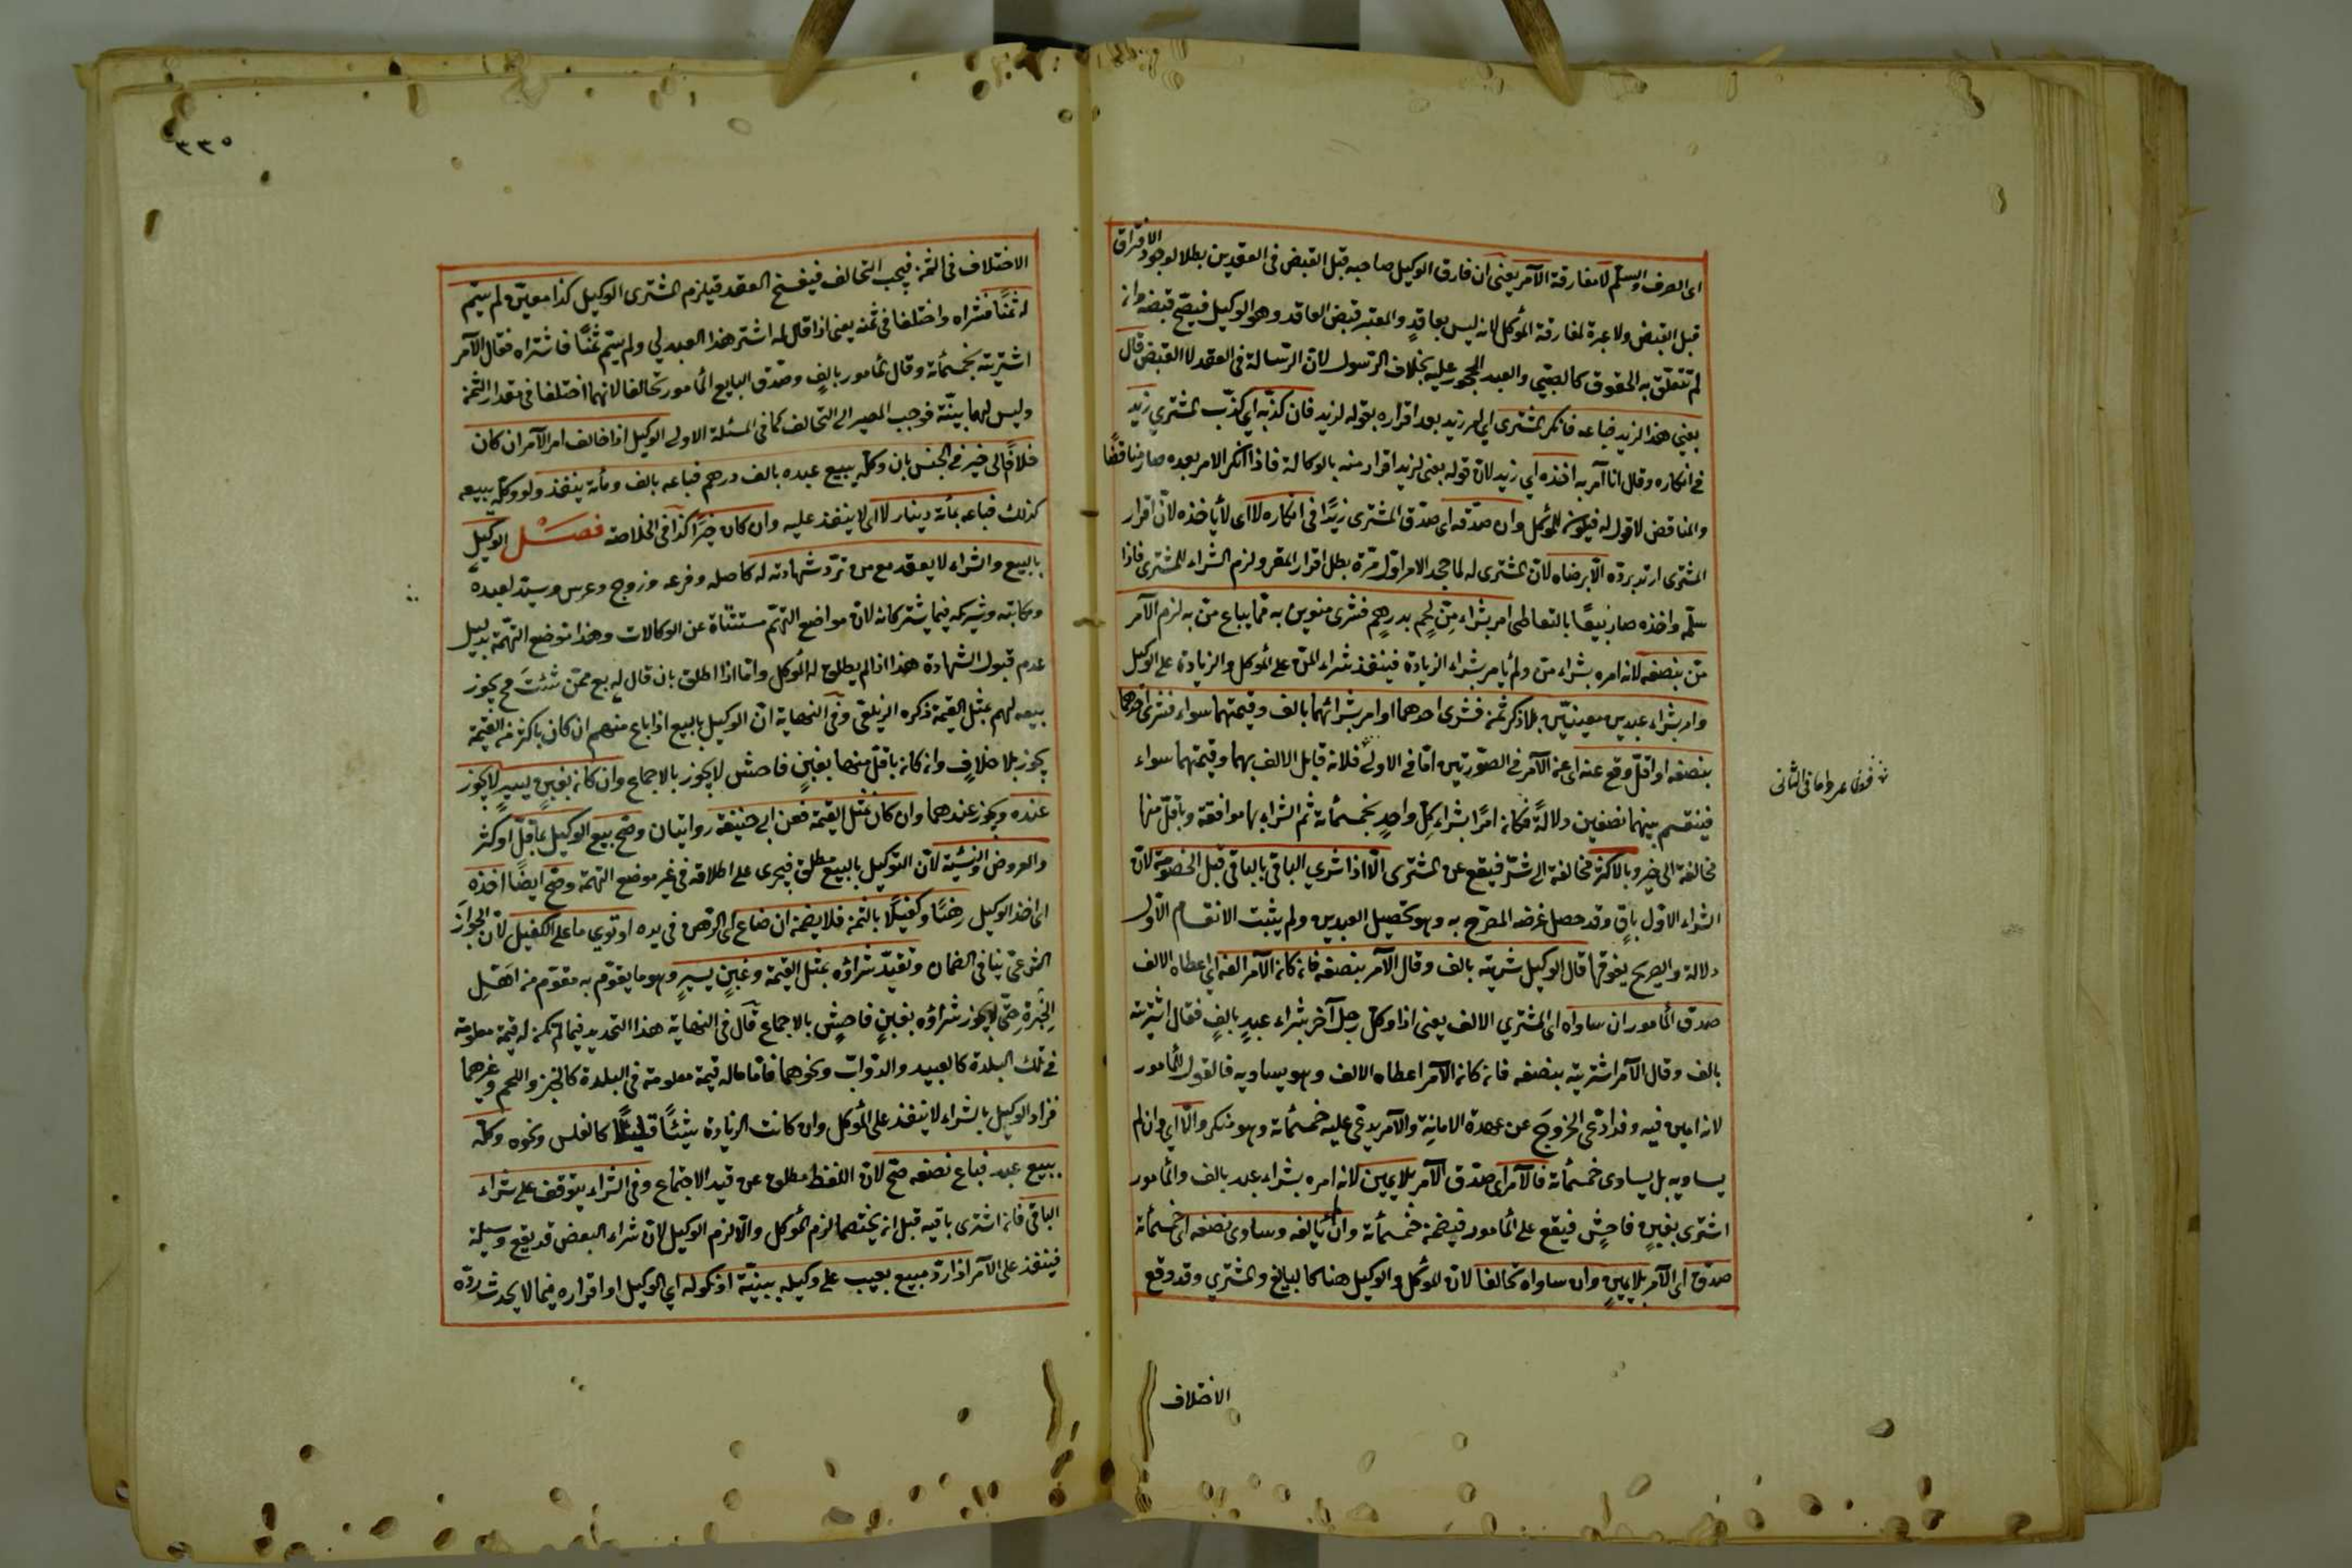 اى الصرف والسلم لا مفارقة الآمر يعنى ان فارق الوكيل صاحبه قبل القبض فى العقدين بطلا لوجود الافتراق
قبل القبض ولا عبرة لمفارقة الموكل لانه ليس بعاقدٍ والمعتبر قبض العاقد وهو الوكيل فيصح قبضه وان
لم تتعلق به الحقوق كالصبى والعبد المحجور عليه بخلاف الرسول لان الرسالة فى العقد لا القبض قال
بعنى هذا لزيد فباعه فانكر المشترى اى امر زيد بعد اقراره بقوله لزيد فان كذبه اى كذب المشترى زيد
فى انكاره وقال انا آمر به اخذه اى زيد لان قوله بعنى لزيد اقرار منه بالوكالة فاذا انكر الامر بعده صار مناقضًا
والمناقض لا قول له فيكون للموكل وان صدقه اى صدق المشترى زيدًا فى انكاره لا اى لا ياخذه لان اقرار
المشترى ارتد برده الا برضاه لان المشترى له لما جحد الامر اول مرة بطل اقرار المقر ولزم الشراء للمشترى فاذا
سلّمه واخذه صار بيعًا بالتعاطى امر بشراء منّ لحمٍ بدرهم فشرى منوين به مما يباع منّ به لزم الآمر
منّ بنصفه لانه امره بشراء منّ ولم يامر بشراء الزيادة فينفذ شراء المنّ على الموكل والزيادة على الوكيل
وامر بشراء عبدين معينين بلا ذكر ثمن فشرى احدهما او امر بشرائهما بالف وقيمتهما سواء فشرى احدهما
بنصفه او اقل وقع عنه اى عن الآمر فى الصورتين اما فى الاولى فلانه قابل الالف بهما وقيمتهما سواء
فينقسم بينهما نصفين دلالةً فكانه امرًا بشراء كل واحدٍ بخمسمائة ثم الشراء بها موافقة وباقل منها
مخالفة الى خير وبالاكثر مخالفة الى شر فيقع عن المشترى الا اذا شرى الباقى بالباقى قبل الخصومة لان
الشراء الاول باقٍ وقد حصل غرضه المصرح به وهو تحصيل العبدين ولم يثبت الانقسام الا
دلالة والصريح يفوقها قال الوكيل شريته بالف وقال الآمر بنصفه فان كان الآمر الفه اى اعطاه الالف
صدق المأمور ان ساواه اى المشترى الالف يعنى اذا وكل رجل آخر بشراء عبدٍ بالفٍ فقال اشتريته
بالف وقال الآمر اشتريته بنصفه فان كان الآمر اعطاه الالف وهو يساويه فالقول للمأمور
لانه امين فيه وقد ادعى الخروجَ عن عهدة الامانة والآمر يدعى عليه خمسمائة وهو منكر والا اى وان لم
يساويه بل يساوى خمسمائة فالآمر اى صدق الآمر بلا يمين لانه امره بشراء عبد بالف والمأمور
اشترى بغبنٍ فاحشٍ فيقع على المأمور فيضمن خمسمائة وان لم يالفه وساوى نصفه اى خمسمائة
صدق اى الآمر بلا يمينٍ وان ساواه تحالفا لان الموكل والوكيل هنا كالبايع والمشترى وقد وقع
الاختلاف
٣٣٥
الاختلاف فى الثمن فيجب التحالف فيفسخ العقد فيلزم المشترى الوكيل كذا معين لم يسم
له ثمنًا فشراه واختلفا فى ثمنه يعنى اذا قال له اشتر هذا العبد لى ولم يسم ثمنًا فاشتراه فقال الآمر
اشتريته بخمسمائة وقال المأمور بالفٍ وصدق البايع المأمور تحالفا لانهما اختلفا فى مقدار الثمن
وليس لهما بينة فوجب المصير الى التحالف كما فى المسئلة الاولى الوكيل اذا خالف امر الآمر ان كان
خلافًا الى خير فى الجنس بان وكله ببيع عبده بالف درهم فباعه بالف ومائة ينفذ ولو وكله ببيعه
كذلك فباعه بمائة دينار لا اى لا ينفذ عليه وان كان خيرًا كذا فى الخلاصة فصل الوكيل
بالبيع والشراء لا يعقد مع من ترد شهادته له كاصله وفرعه وزوج وعرس وسيد لعبده
ومكاتبه وشريكه فيما يشتركانه لان مواضع التهم مستثناة عن الوكالات وهذا موضع التهمة بدليل
عدم قبول الشهادة هذا اذا لم يطلق له الموكل واما اذا اطلق بان قال له بع ممن شئتَ فح يجوز
بيعه لهم بمثل القيمة ذكره الزيلعى وفى النهاية ان الوكيل بالبيع اذا باع منهم ان كان باكثر من القيمة
يجوز بلا خلافٍ وان كان باقل منها بغبنٍ فاحش لا يجوز بالاجماع وان كان بغبنٍ يسيرٍ لا يجوز
عنده ويجوز عندهما وان كان بمثل القيمة فعن ابى حنيفة روايتان وصح بيع الوكيل بما قل او كثر
والعروض والنسيئة لان التوكيل بالبيع مطلق فيجرى على اطلاقه فى غير موضع التهمة وصح ايضًا اخذه
اى اخذ الوكيل رهنًا وكفيلًا بالثمن فلا يضمن ان ضاع اى الرهن فى يده او توى ما على الكفيل لان الجوازَ
الشرعى ينافى الضمان وتقيد شراؤه بمثل القيمة وغبنٍ يسيرٍ وهو ما يقوّم به مقوّم من اهل
الخبرة حتى لا يجوز شراؤه بغبنٍ فاحشٍ بالاجماع قال فى النهاية هذا التحديد فيما لم تكن له قيمة معلومة
فى تلك البلدة كالعبيد والدواب ونحوهما فاما ما له قيمة معلومة فى البلدة كالخبز واللحم وغيرهما
فزاد الوكيل بالشراء لا ينفذ على الموكل وان كانت الزيادة شيئًا قليلًا كالفلس ونحوه وكله
ببيع عبد فباع نصفه صح لان اللفظ مطلق عن قيد الاجتماع وفى الشراء يتوقف على شراء
الباقى فان اشترى باقيه قبل ان يختصما لزم الموكل والا لزم الوكيل لان شراء البعض قد يقع وسيلة
فينفذ على الآمر اذا رد مبيع بعيب على وكيله ببينة او نكوله اى الوكيل او اقراره فيما لا يحدث رده